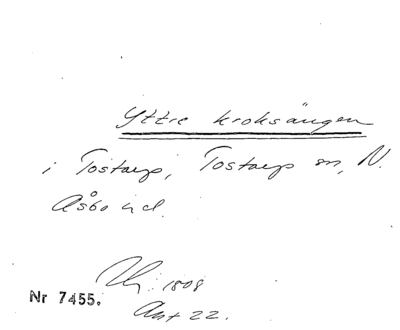 Yttre kroksängen
i Tostarp, Tostarp sn, N.
Åsbo hd.
1808
Nr 7455.
Akt 22.